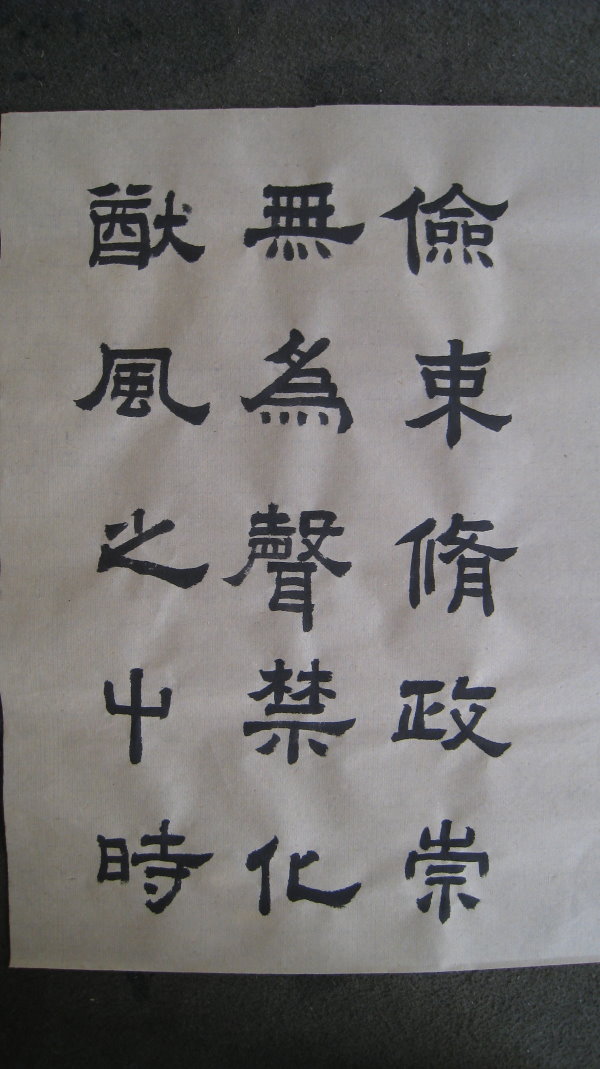 儉束脩政崇
無為聲禁化
猷風之屮時